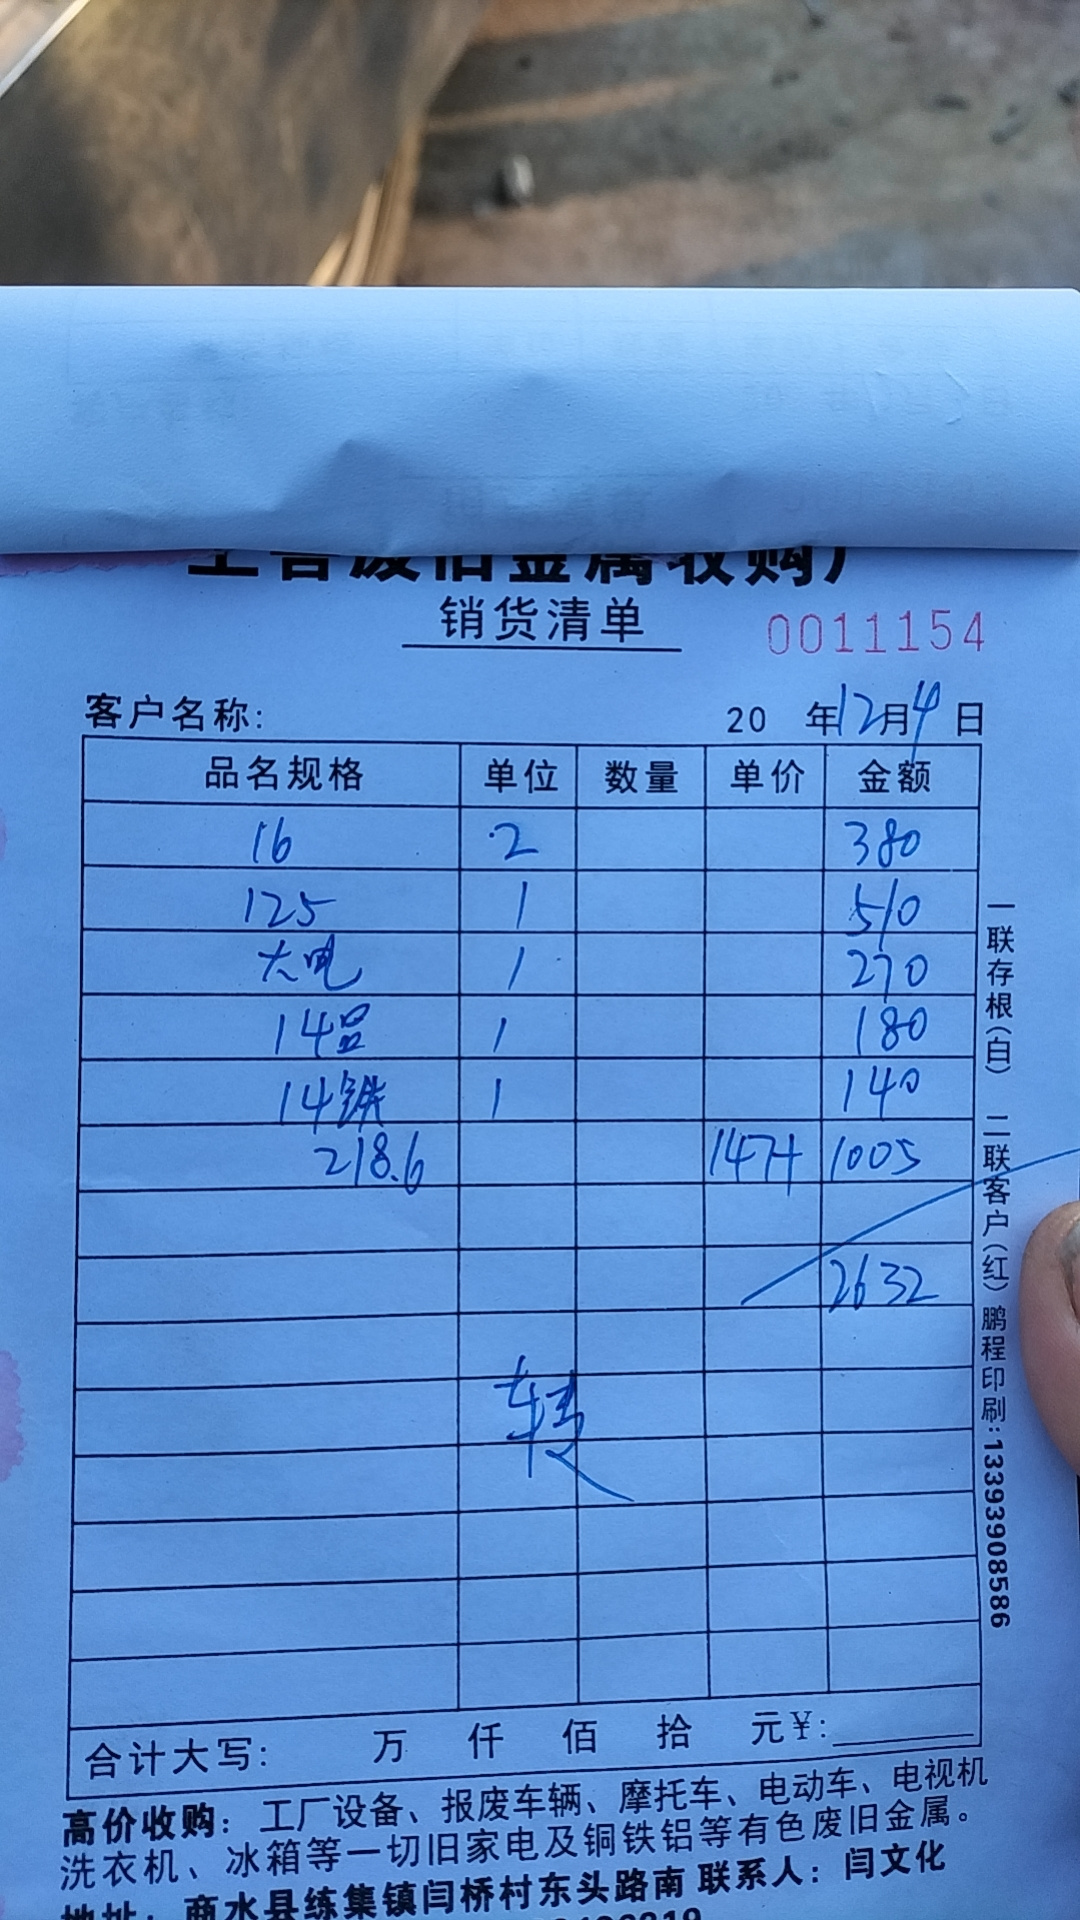 废旧金属收购厂
销货清单
0011154
客户名称: 20 年12月4日
品名规格 单位 数量 单价 金额
16 2 380
125 1 510
大电 1 270
14 1 180
14铁 1 140
218.6 1474 1005
2632
转
合计大写: 万 仟 佰 拾 元¥:
高价收购: 工厂设备、报废车辆、摩托车、电动车、电视机
洗衣机、冰箱等一切旧家电及铜铁铝等有色废旧金属。
地址: 商水县练集镇闫桥村东头路南 联系人: 闫文化
一联存根(白) 二联客户(红) 鹏程印刷:13393908586